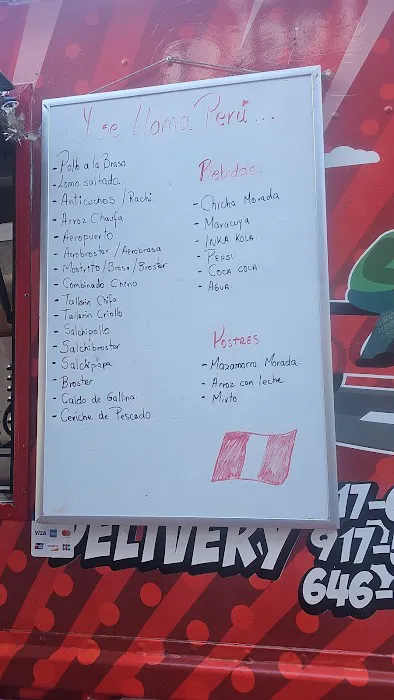 Y se llama Perú...
- Pollo a la Brasa
- Lomo saltado.
- Anticuchos / Rachi
- Arroz Chaufa
- Aeropuerto
- Aerobroster / Aerobrasa
- Mostrito / Brasa / Broster
- Combinado Chino
- Tallarin Chifa
- Tallarin Criollo
- Salchipollo
- Salchibroster
- Salchipapa
- Broster
- Caldo de Gallina
- Ceviche de Pescado.
Bebidas
- Chicha Morada
- Maracuya
- INKA KOLA
- PEPSI
- COCA COLA
- AGUA
POSTRES
- Mazamorra Morada
- Arroz con leche
- Mixto
VISA
DELIVERY
917-
646-